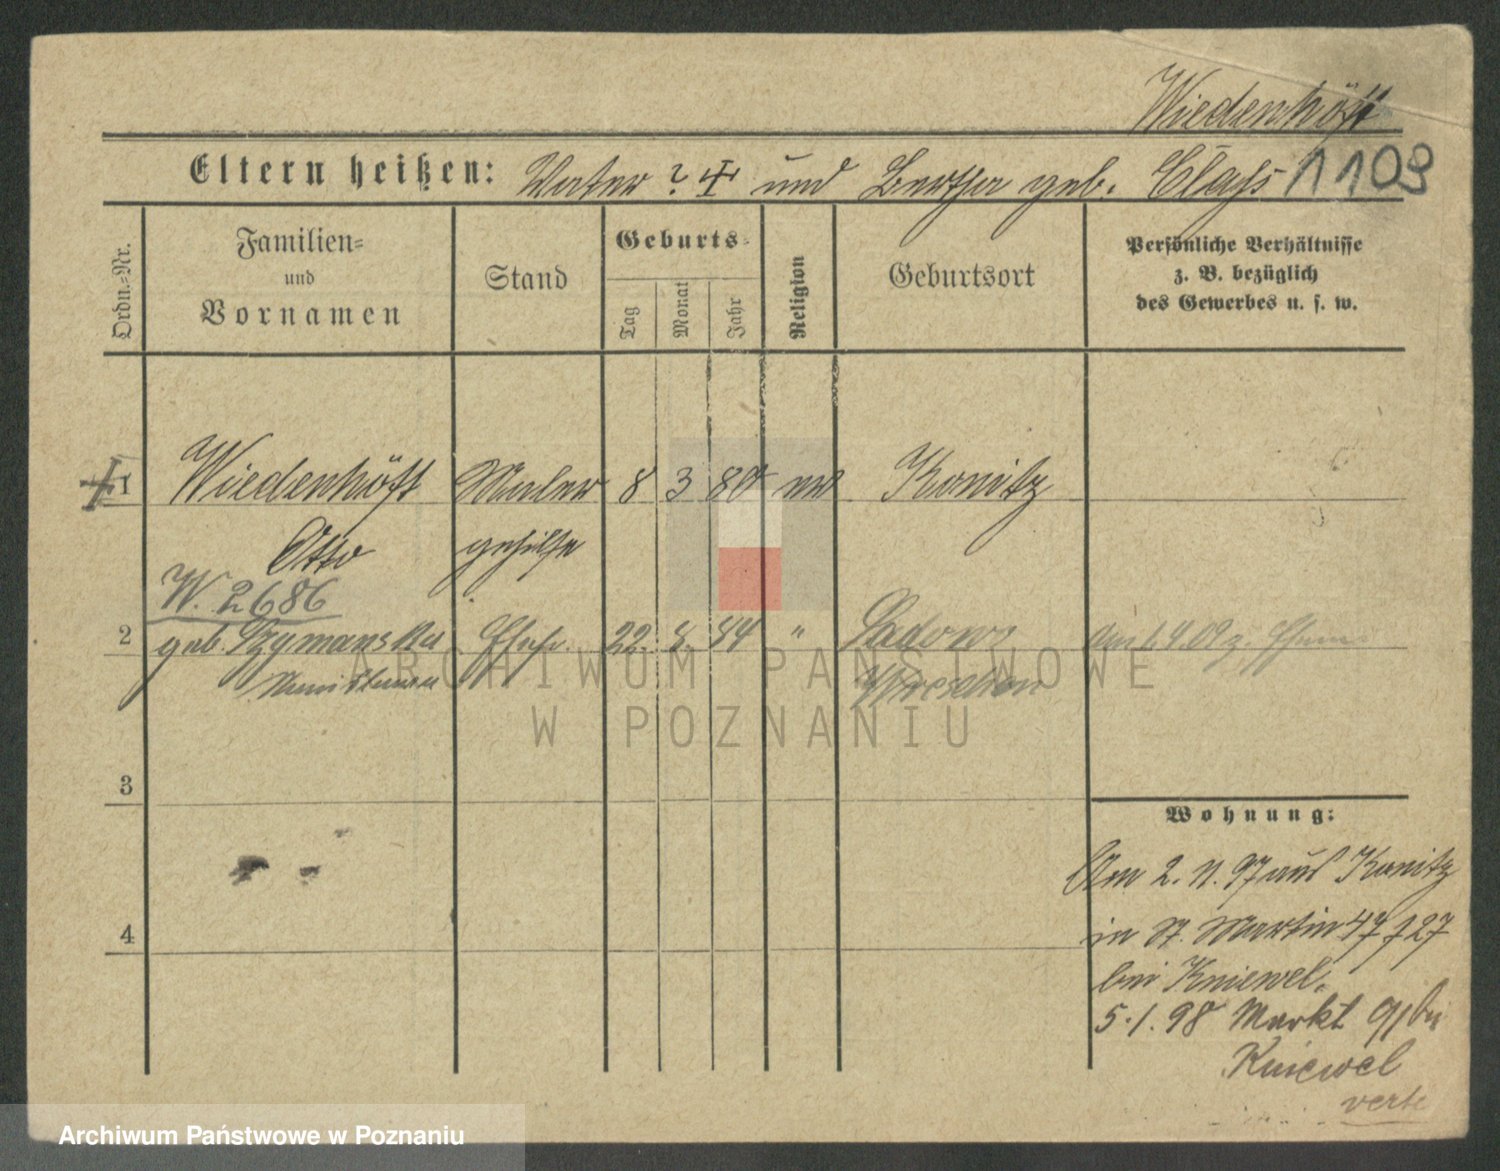 Wiedenhöft
Eltern heißen: Vater ? und Bertha geb. 1103
Ordn.-Nr.
Familien-
und
Vornamen
Stand
Geburts-
Tag
Monat
Jahr
Religion
Geburtsort
Persönliche Verhältnisse
z. B. bezüglich
des Gewerbes u. s. w.
1 Wiedenhöft Maler 8 3 80 ev Konitz
Otto gehilfe
W. 2686
2 geb. Szymanska Ehefr. 22. 8. 84 " Sadowo
Wreschen
3
4
Wohnung:
Am 2. 11. 97 aus Konitz
in St. Martin 47
bei Kniewel.
5. 1. 98 Markt 91 bei
Kniewel
verte
ARCHIWUM PAŃSTWOWE
W POZNANIU
Archiwum Państwowe w Poznaniu